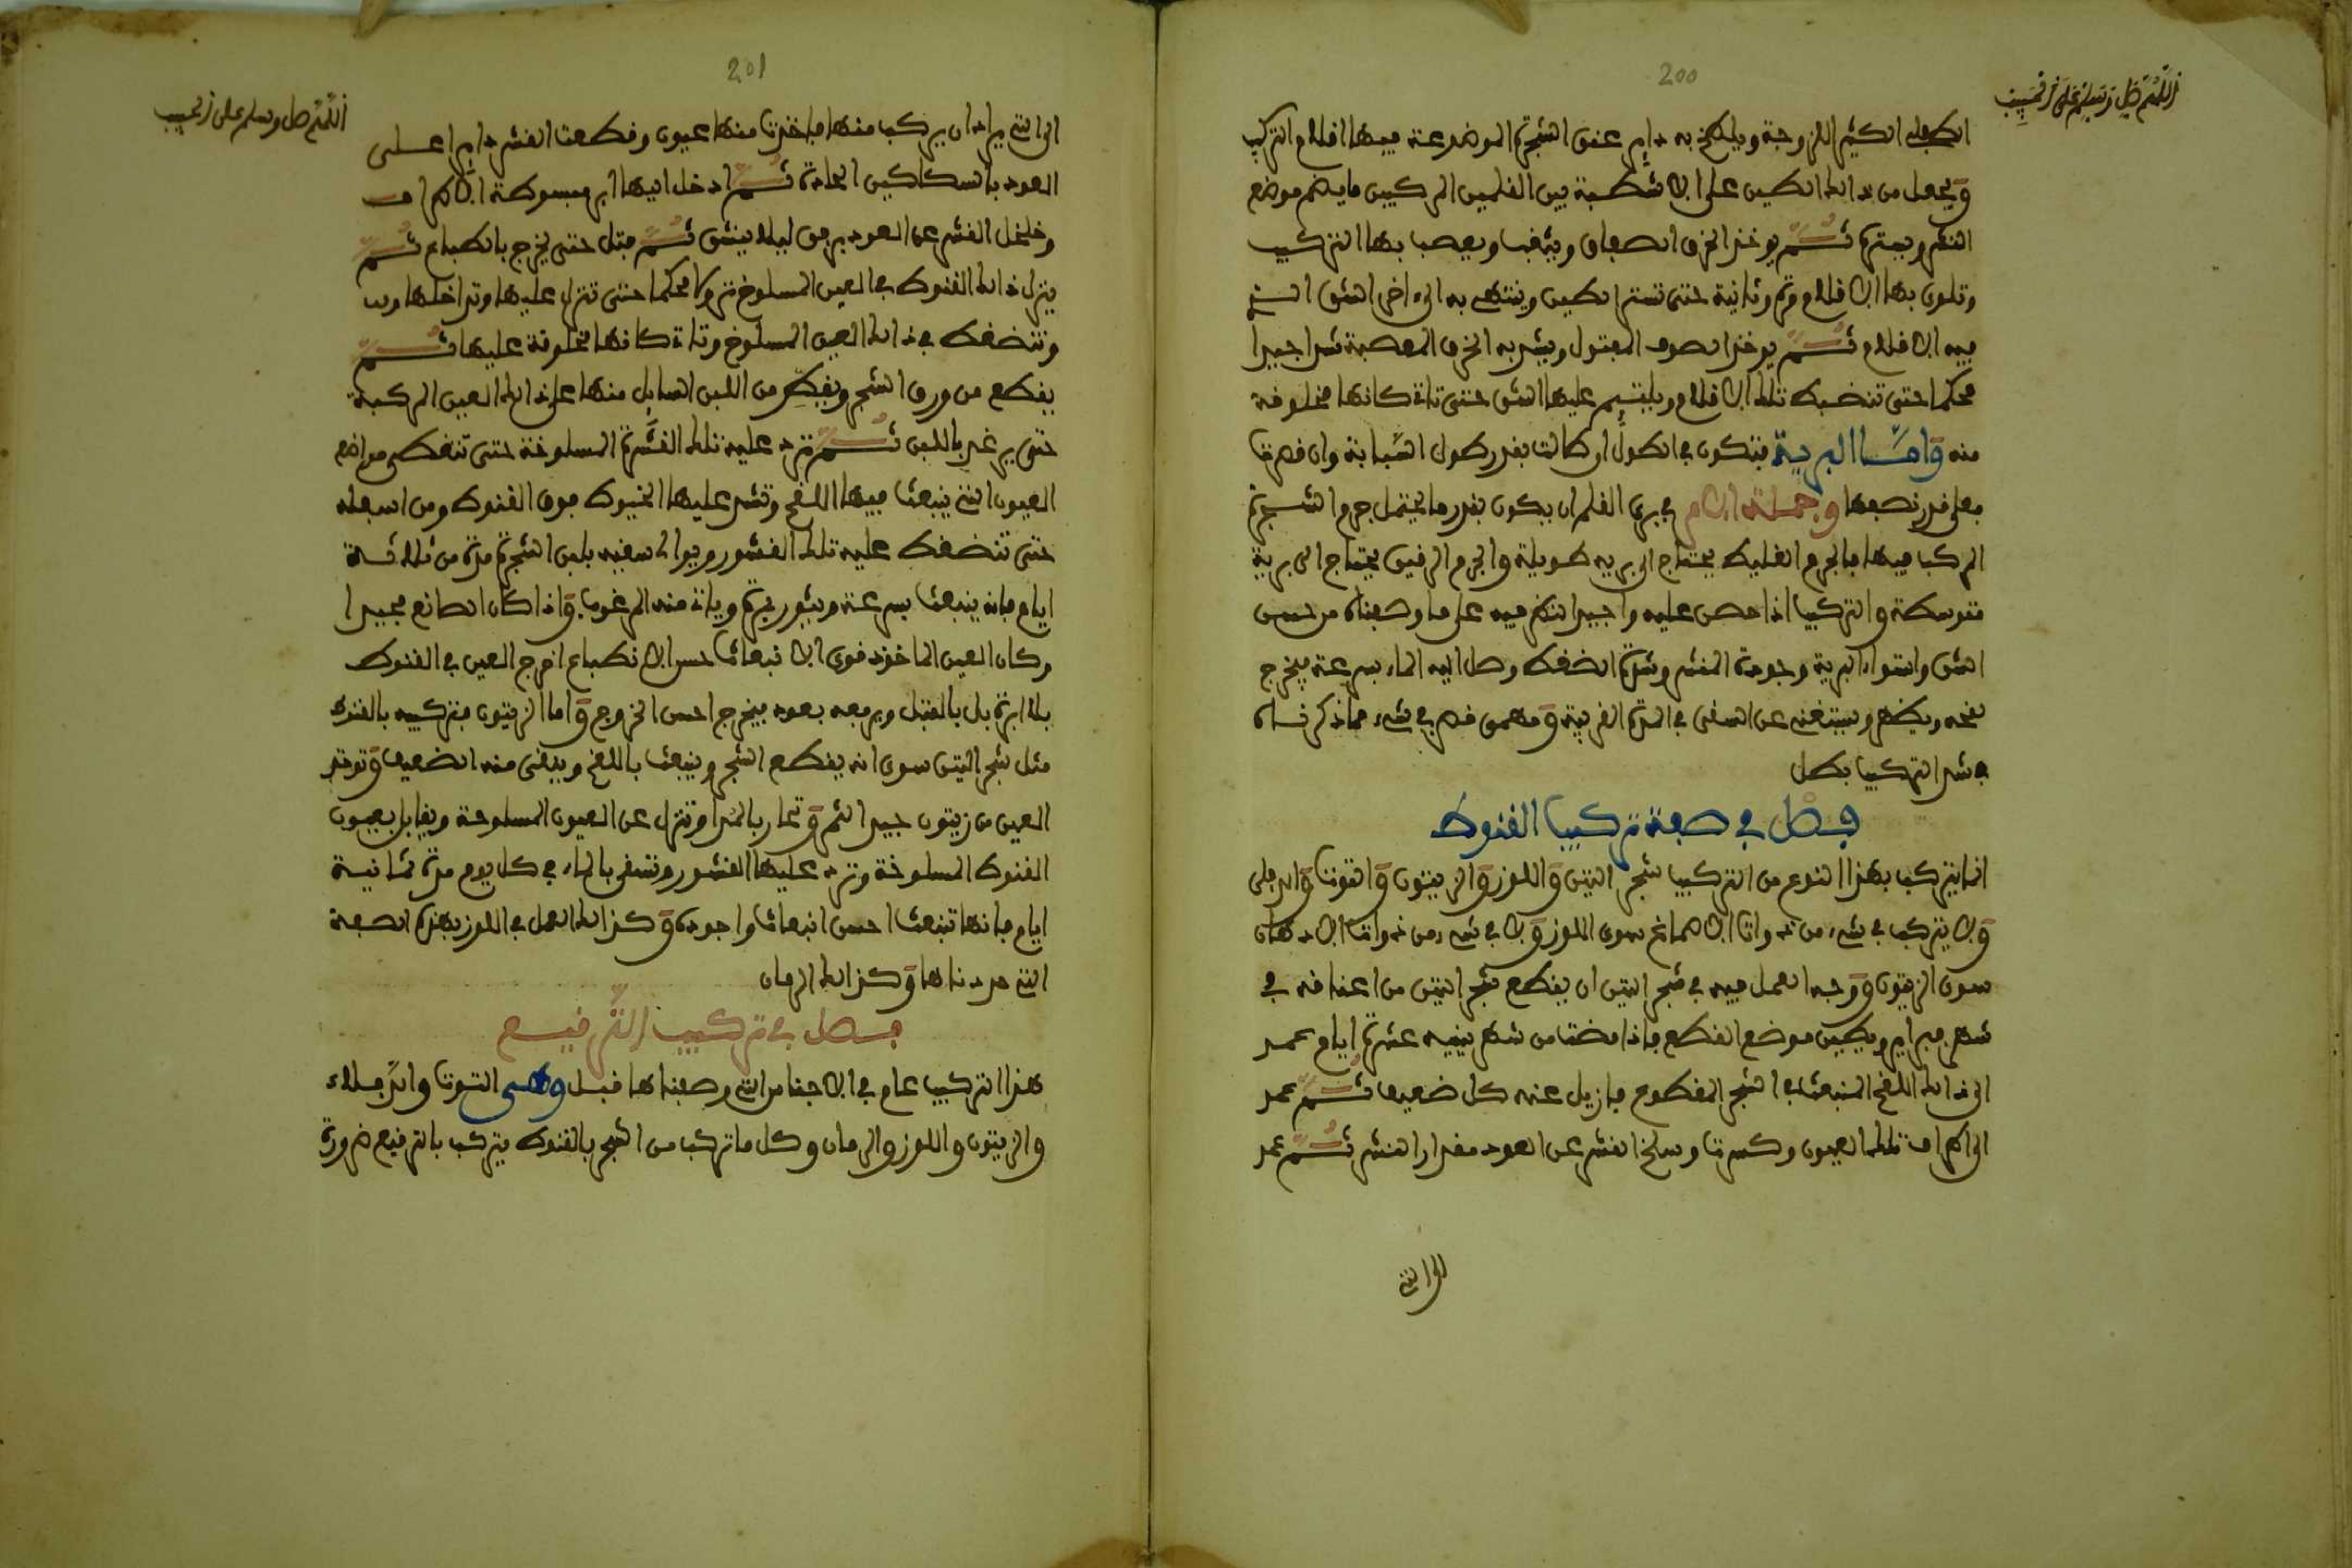 200
اللهم صل وسلم على الحبيب
الطفلى الكثير اللزوجة ويلطخ به داير عنق الشجرة الموضوعة فيها اقلام التركيب
ويجعل من ذالك الطين على الا شطبة بين القلمين المركبين ما يضم موضع
ويسترة ثم يوخذ الخرق الصفاق ويثقب ويعصب بها التركيب
وتلوى بها الاقلام مرة وثانية حتى تستر الطين وينتهى به الى اخر الشق الذي
فيه الاقلام ثم يوخذ الصوف المفتول ويشد به الخرق المعصبة شدا جيدا
محكما حتى تنضبط تلك الاقلام ويلتيم عليها الشق حتى تاتي كانها مخلوفة
منه واما البرية فتكون في الطول ان كانت بقدر طول السبابة وان قصرت
فعلى قدر نصفها وجملة الامر في برى القلم ان يكون بقدر ما يحتمل جرم الشجرة
المركب فيها فالجرم الغليظ يحتاج الى برية طويلة والجرم الرقيق يحتاج الى برية
متوسطة والتركيب اذا حصن عليه واجيد النظر فيه على ما وصفناه من حسن
الشق واستواء البرية وجودة القشر وشدة الضغط وصل اليه الماء بسرعة فيخرج
لقحه ويظهر ويستغنى عن السقى في المدة القريبة ومهمى قصر في شيء مما ذكرناه
في شد التركيب بطل
فصل في صفة تركيب القنوط
انما يتركب بهذا النوع من التركيب شجر التين واللوز والزيتون والتوت والدفلى
ولا يتركب في شيء من ذوات الاصماغ سوى اللوز ولا في شيء من ذوات الادهان
سوى الزيتون ووجه العمل فيه في شجر التين ان يقطع شجر التين من اعناقه في
شهر فبراير ويطين موضع القطع فاذا مضت من شهر ينيه عشرة ايام عمد
الى ذالك اللقح المنبعث في الشجر المقطوع فازيل عنه كل ضعيف ثم عمد
الى اطراف تلك العيون وكسرت وسلخ القشر عن العود مقدار القشر ثم عمد
الى التي
201
اللهم صل وسلم على الحبيب
الى التي يراد ان يركب منها فاخذت منها عيون وقطعت القشر داير اعلى
العود بالسكاكين الحادة ثم ادخل اليها ابر مبسوطة الاطراف
وخلخل القشر عن العود برفق ليلا ينشق ثم فتل حتى يخرج بالطباع ثم
ينزل ذالك القنوط في العين المسلوخ نزولا محكما حتى تنزل عليها وتداخلها
وتنضغط في ذالك العين المسلوخ وتاتي كانها مخلوقة عليها ثم
يقطع من ورق الشجر ويقطر من اللبن السايل منها على ذالك العين المركبة
حتى يرغد باللبن ثم ترد عليه تلك القشرة المسلوخة حتى تغطى مواضع
العيون التي ينبعث فيها اللقح وتشد عليها الخيوط فوق القنوط ومن اسفله
حتى تنضغط عليه تلك القشور ويوالى سقيه بلبن الشجرة مدة من ثلاثة
ايام فانه ينبعث بسرعة ويثور بمرة وياتي منه المرغوب واذا كان الصانع مجيدا
وكان العين الماخوذ قوى الانبعاث حسن الانطباع اخرج العين في القنوط
بلا ابرة بل بالفتل ويرفعه بعود فيخرج احسن الخروج واما الزيتون فتركيبه بالقنوط
مثل شجر التين سوى انه يقطع الشجر وينبعث باللقح وينقى منه الضعيف وتوخذ
العين من زيتون جيد الثمر وتحار بالمدا وتنزل عن العيون المسلوخة ويقابل بعيون
القنوط المسلوخة وترد عليها القشور وتسقى بالماء في كل يوم مرة ثمانية
ايام فانها تنبعث احسن انبعاث واجوده وكذالك العمل في اللوز بهذه الصفة
التي حددناها وكذالك الرمان
فصل في تركيب الترقيع
هذا التركيب عام في الاجناس التي وصفناها قبل وهى التوت والدفلاء
والزيتون واللوز والرمان وكل ما تركب من الشجر بالقنوط يتركب بالترقيع ضرورة